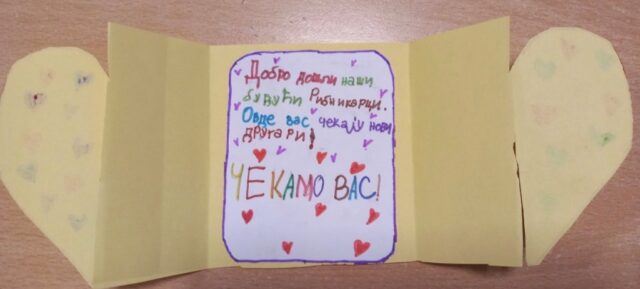 Добро дошли наши
будући Рибникарци.
Овде вас чекају нови
другари!
ЧЕКАМО ВАС!